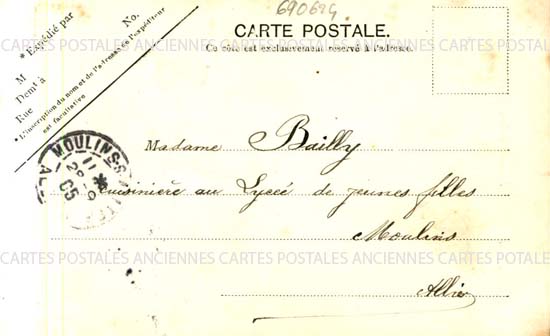 690694
No.
* Expédié par
M
Demt à
Rue
* L'inscription du nom et de l'adresse de l'expéditeur
est facultative
CARTE POSTALE.
Ce côté est exclusivement réservé à l'adresse.
CARTES POSTALES ANCIENNES CARTES POSTALES ANCIENNES CARTES POSTALES
MOULINS-S
AL
11
05
Madame Bailly
Cuisinière au Lycée de jeunes filles
Moulins
Allier
CARTES POSTALES ANCIENNES CARTES POSTALES ANCIENNES CARTES POSTALES